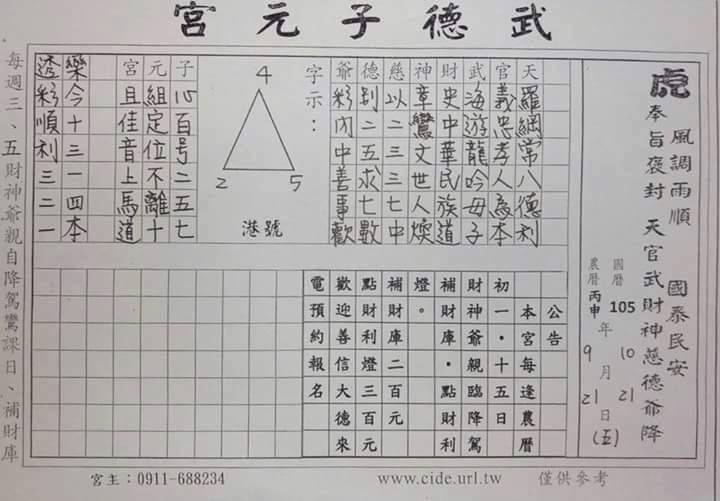 武德子元宮
虎 風調雨順 國泰民安
奉旨褒封 天官武財神慈德爺降
國曆105年10月21日(五)
農曆丙申9月21日
天羅綱常八德利
官義忠孝人為本
武海遊龍吟毋子
財史中華民族道
神章鸞文世人煥
慈以二三三七中
德刮二五求七數
爺彩內中善事歡
字示:
4
2 5
港號
子心百号二五七
元組定位不離十
宮且佳音上馬道
樂今十三一四本
透彩順利三二一
公告
本宮每逢農曆
初一‧十五日
財神爺親臨降駕
補財庫‧點財利
燈。
補財庫二百元
點財利燈三百元
歡迎善信大德來
電預約報名
每週三、五財神爺親自降駕鸞課日、補財庫
宮主:0911-688234
www.cide.url.tw
僅供參考